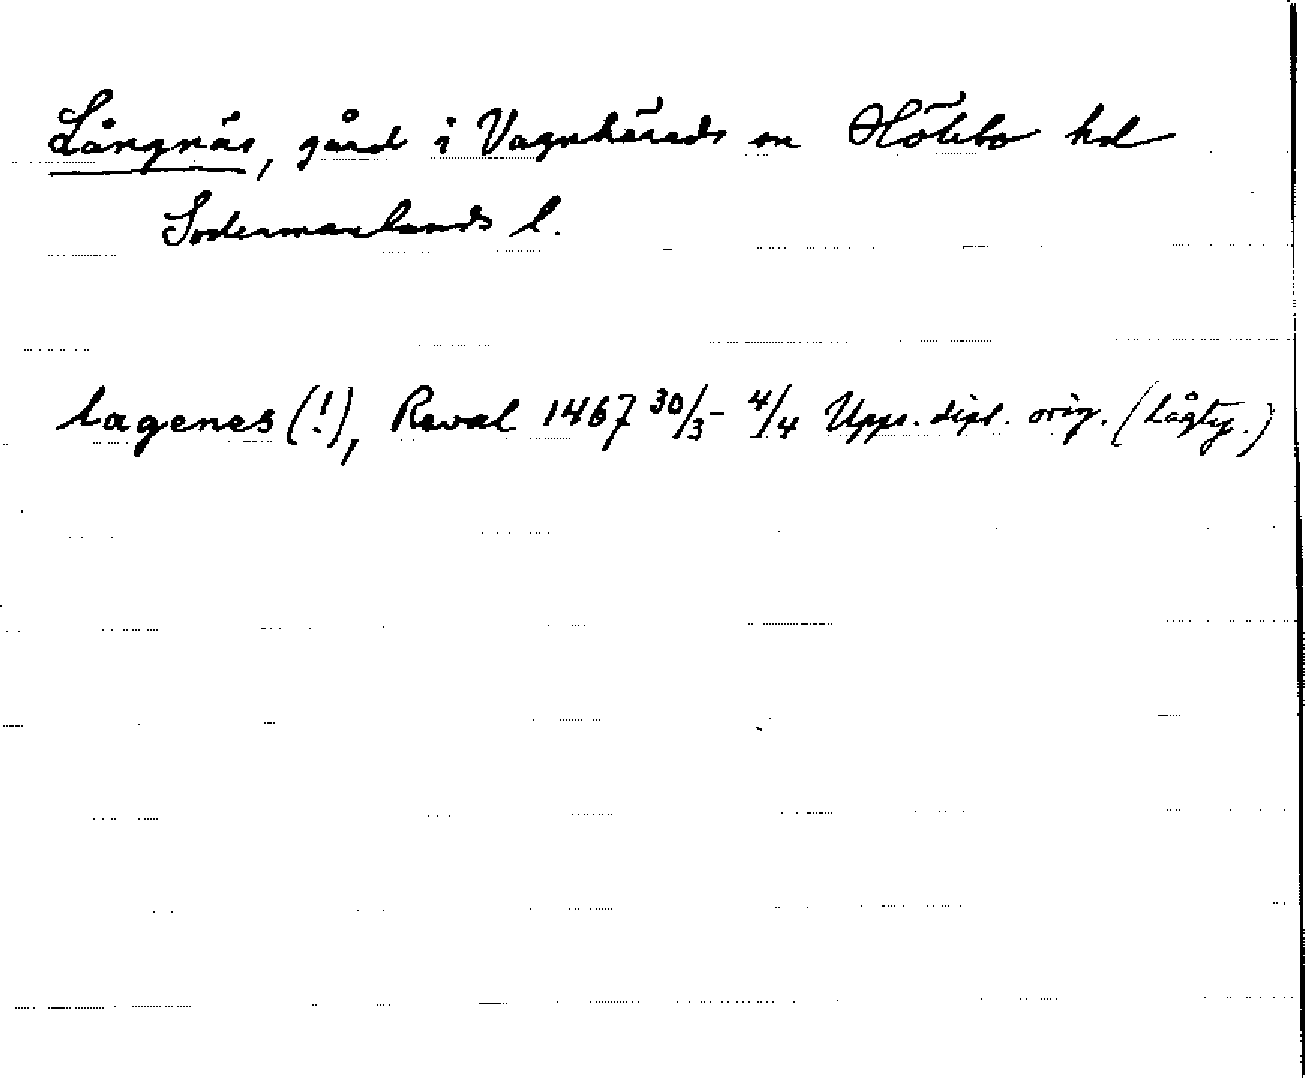 Långnäs, gård i Vagnhärads sn Hölebo hd
Södermanlands l.
lagenes (!), Reval 1467 30/3 - 4/4 Upps. dipl. orig. (Lågty.)